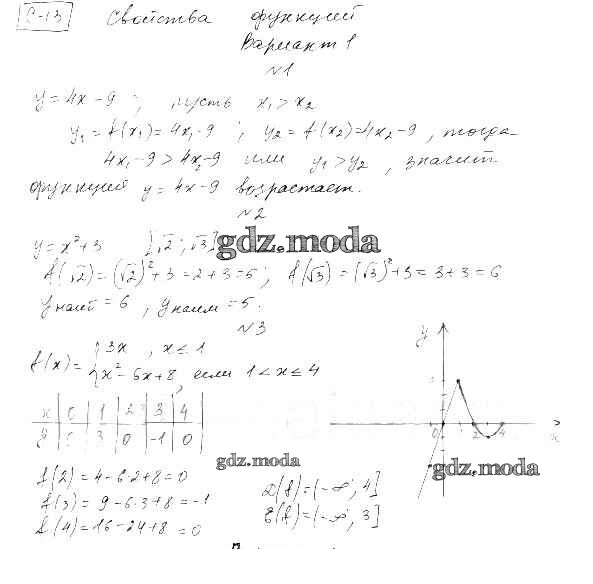 С-13 Свойства функций
Вариант 1
№1
y = 4x - 9 ; пусть x₁ > x₂
y₁ = f(x₁) = 4x₁ - 9 ; y₂ = f(x₂) = 4x₂ - 9 , тогда
4x₁ - 9 > 4x₂ - 9 или y₁ > y₂ , значит
функцией y = 4x - 9 возрастает.
№2
y = x² + 3 [√2 ; √3]
gdz.moda
f(√2) = (√2)² + 3 = 2 + 3 = 5 ; f(√3) = (√3)² + 3 = 3 + 3 = 6
yнаиб = 6 , yнаим = 5.
№3
f(x) = { 3x , x ≤ 1
x² - 6x + 8 , если 1 < x ≤ 4
x | 0 | 1 | 2 | 3 | 4
y | 0 | 3 | 0 | -1 | 0
f(2) = 4 - 6·2 + 8 = 0
f(3) = 9 - 6·3 + 8 = -1
f(4) = 16 - 24 + 8 = 0
gdz.moda
D(f) = (-∞; 4]
E(f) = (-∞; 3]
y
x
0 1 2 4
gdz.moda